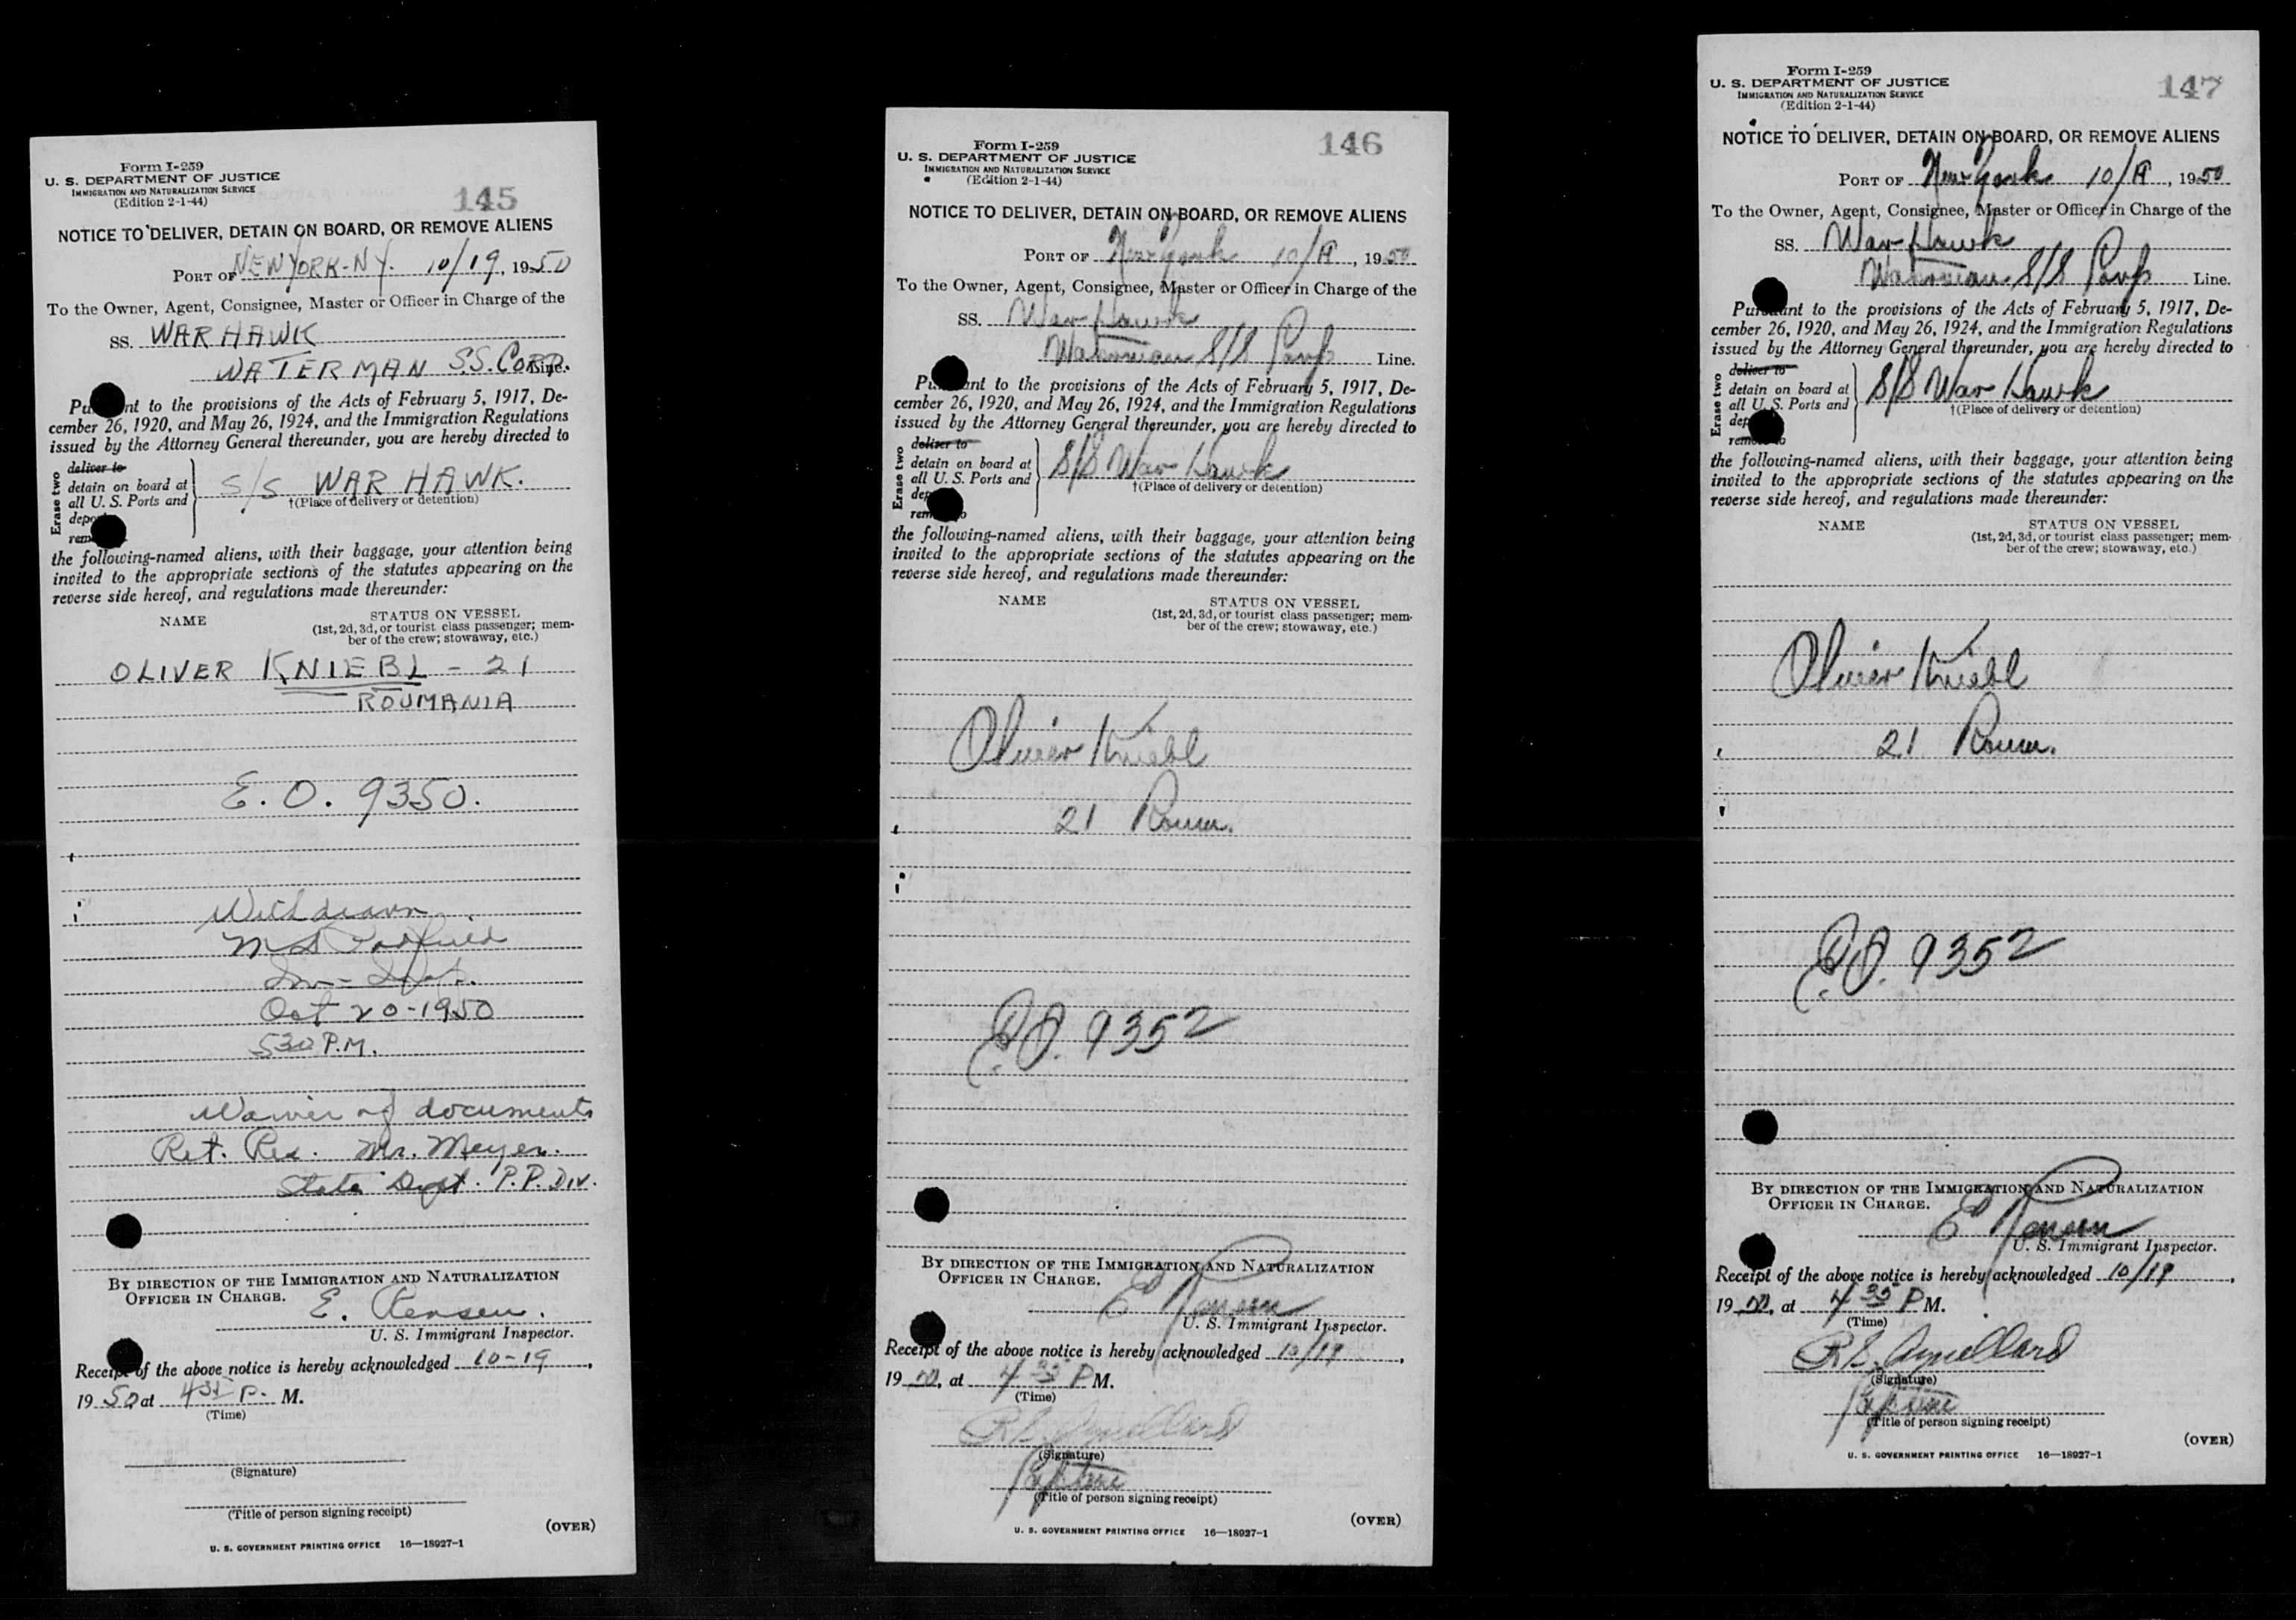 Form I-259
U. S. DEPARTMENT OF JUSTICE
IMMIGRATION AND NATURALIZATION SERVICE
(Edition 2-1-44)
145
NOTICE TO DELIVER, DETAIN ON BOARD, OR REMOVE ALIENS
PORT OF NEW YORK-NY. 10/19, 1950
To the Owner, Agent, Consignee, Master or Officer in Charge of the
SS. WAR HAWK
WATERMAN S.S. CORP. Line.
Pursuant to the provisions of the Acts of February 5, 1917, De-
cember 26, 1920, and May 26, 1924, and the Immigration Regulations
issued by the Attorney General thereunder, you are hereby directed to
Erase two
deliver to
detain on board at
all U. S. Ports and
S/S WAR HAWK.
†(Place of delivery or detention)
the following-named aliens, with their baggage, your attention being
invited to the appropriate sections of the statutes appearing on the
reverse side hereof, and regulations made thereunder:
NAME STATUS ON VESSEL
(1st, 2d, 3d, or tourist class passenger; mem-
ber of the crew; stowaway, etc.)
OLIVER KNIEBL - 21
ROUMANIA
E. O. 9350.
Withdrawn
Oct 20-1950
530 P.M.
Waiver of documents
Ret. Res. Mr. Meyer.
State Dept. P.P. Div.
BY DIRECTION OF THE IMMIGRATION AND NATURALIZATION
OFFICER IN CHARGE.
E.
U. S. Immigrant Inspector.
Receipt of the above notice is hereby acknowledged 10-19,
1950 at 435 P. M.
(Time)
(Signature)
(Title of person signing receipt)
(OVER)
U. S. GOVERNMENT PRINTING OFFICE 16—18927-1
Form I-259
U. S. DEPARTMENT OF JUSTICE
IMMIGRATION AND NATURALIZATION SERVICE
(Edition 2-1-44)
146
NOTICE TO DELIVER, DETAIN ON BOARD, OR REMOVE ALIENS
PORT OF New York 10/19, 1950
To the Owner, Agent, Consignee, Master or Officer in Charge of the
SS. War Hawk
Waterman S/S Corp Line.
Pursuant to the provisions of the Acts of February 5, 1917, De-
cember 26, 1920, and May 26, 1924, and the Immigration Regulations
issued by the Attorney General thereunder, you are hereby directed to
Erase two
deliver to
detain on board at
all U. S. Ports and
S/S War Hawk
†(Place of delivery or detention)
the following-named aliens, with their baggage, your attention being
invited to the appropriate sections of the statutes appearing on the
reverse side hereof, and regulations made thereunder:
NAME STATUS ON VESSEL
(1st, 2d, 3d, or tourist class passenger; mem-
ber of the crew; stowaway, etc.)
Oliver Kniebl
21 Roum.
E.O. 9352
BY DIRECTION OF THE IMMIGRATION AND NATURALIZATION
OFFICER IN CHARGE.
E
U. S. Immigrant Inspector.
Receipt of the above notice is hereby acknowledged 10/19,
1950, at 4 35 P M.
(Time)
(Signature)
Captain
(Title of person signing receipt)
(OVER)
U. S. GOVERNMENT PRINTING OFFICE 16—18927-1
Form I-259
U. S. DEPARTMENT OF JUSTICE
IMMIGRATION AND NATURALIZATION SERVICE
(Edition 2-1-44)
147
NOTICE TO DELIVER, DETAIN ON BOARD, OR REMOVE ALIENS
PORT OF New York 10/19, 1950
To the Owner, Agent, Consignee, Master or Officer in Charge of the
SS. War Hawk
Waterman S/S Corp Line.
Pursuant to the provisions of the Acts of February 5, 1917, De-
cember 26, 1920, and May 26, 1924, and the Immigration Regulations
issued by the Attorney General thereunder, you are hereby directed to
Erase two
deliver to
detain on board at
all U. S. Ports and
S/S War Hawk
†(Place of delivery or detention)
the following-named aliens, with their baggage, your attention being
invited to the appropriate sections of the statutes appearing on the
reverse side hereof, and regulations made thereunder:
NAME STATUS ON VESSEL
(1st, 2d, 3d, or tourist class passenger; mem-
ber of the crew; stowaway, etc.)
Oliver Kniebl
21 Roum.
E.O. 9352
BY DIRECTION OF THE IMMIGRATION AND NATURALIZATION
OFFICER IN CHARGE.
E
U. S. Immigrant Inspector.
Receipt of the above notice is hereby acknowledged 10/19,
1950, at 4 35 P M.
(Time)
(Signature)
Captain
(Title of person signing receipt)
(OVER)
U. S. GOVERNMENT PRINTING OFFICE 16—18927-1